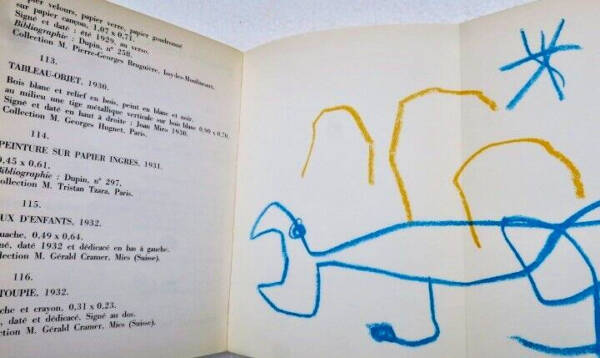 pier velours, papier verre, papier goudronné
sur papier cançon, 1,07 x 0,71.
Signé et daté : été 1929, au verso.
Bibliographie : Dupin, n° 258.
Collection M. Pierre-Georges Bruguière, Issy-les-Moulineaux.
113.
TABLEAU-OBJET. 1930.
Bois blanc et relief en bois, peint en blanc et noir,
au milieu une tige métallique verticale sur bois blanc 0,90 x 0,70.
Signé et daté en haut à droite : Joan Miró 1930.
Collection M. Georges Hugnet, Paris.
114.
PEINTURE SUR PAPIER INGRES. 1931.
0,45 x 0.61.
Bibliographie : Dupin, n° 297.
Collection M. Tristan Tzara, Paris.
115.
UX D'ENFANTS, 1932.
uache, 0,49 x 0,64.
né, daté 1932 et dédicacé en bas à gauche.
llection M. Gérald Cramer, Mies (Suisse).
116.
TOUPIE. 1932.
che et crayon, 0,31 x 0,23.
, daté et dédicacé. Signé au dos.
ction M. Gérald Cramer, Mies (Suisse).